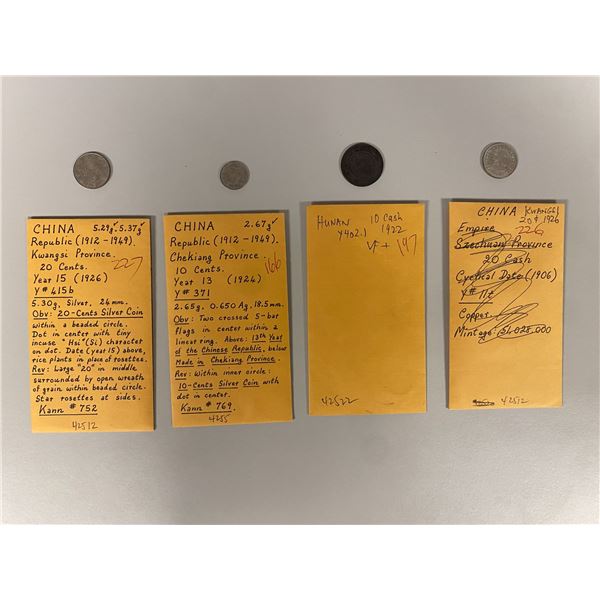 CHINA 5.29g✓, 5.37g✓
Republic (1912-1949).
Kwangsi Province.
20 Cents. 227
Year 15 (1926)
Y# 415b
5.30g, Silver, 24mm.
Obv: 20-Cents Silver Coin
within a beaded circle.
Dot in center with tiny
incuse "Hsi"(Si) character
on dot. Date (year 15) above,
rice plants in place of rosettes.
Rev: Large "20" in middle
surrounded by open wreath
of grain within beaded circle.
Star rosettes at sides.
Kann # 752
42512
CHINA 2.67g✓
Republic (1912-1949).
Chekiang Province.
10 Cents. 166
Year 13 (1924)
Y# 371
2.65g, 0.650 Ag, 18.5mm.
Obv: Two crossed 5-bar
flags in center within a
linear ring. Above: 13th Year
of the Chinese Republic, below
Made in Chekiang Province.
Rev: Within inner circle:
10-Cents Silver Coin with
dot in center.
Kann # 769.
4255
HUNAN 10 Cash
Y402.1 1922
VF+ 197
42522
CHINA KWANGSI
20¢ 1926
Empire 226
Szechuan Province
20 Cash
Cyclical Date (1906)
Y# 11t
Copper
Mintage:
42512